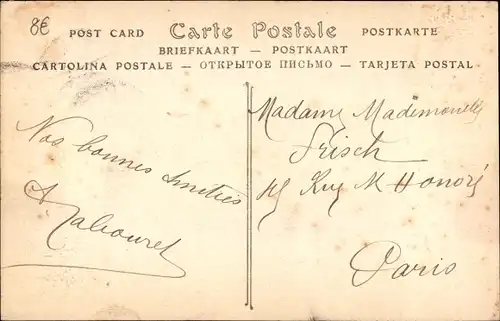 8€
POST CARD Carte Postale POSTKARTE
BRIEFKAART — POSTKAART
CARTOLINA POSTALE — ОТКРЫТОЕ ПИСЬМО — TARJETA POSTAL
Nos bonnes amitiés
Madame Mademoiselle
Frisch
Rue St Honoré
Paris